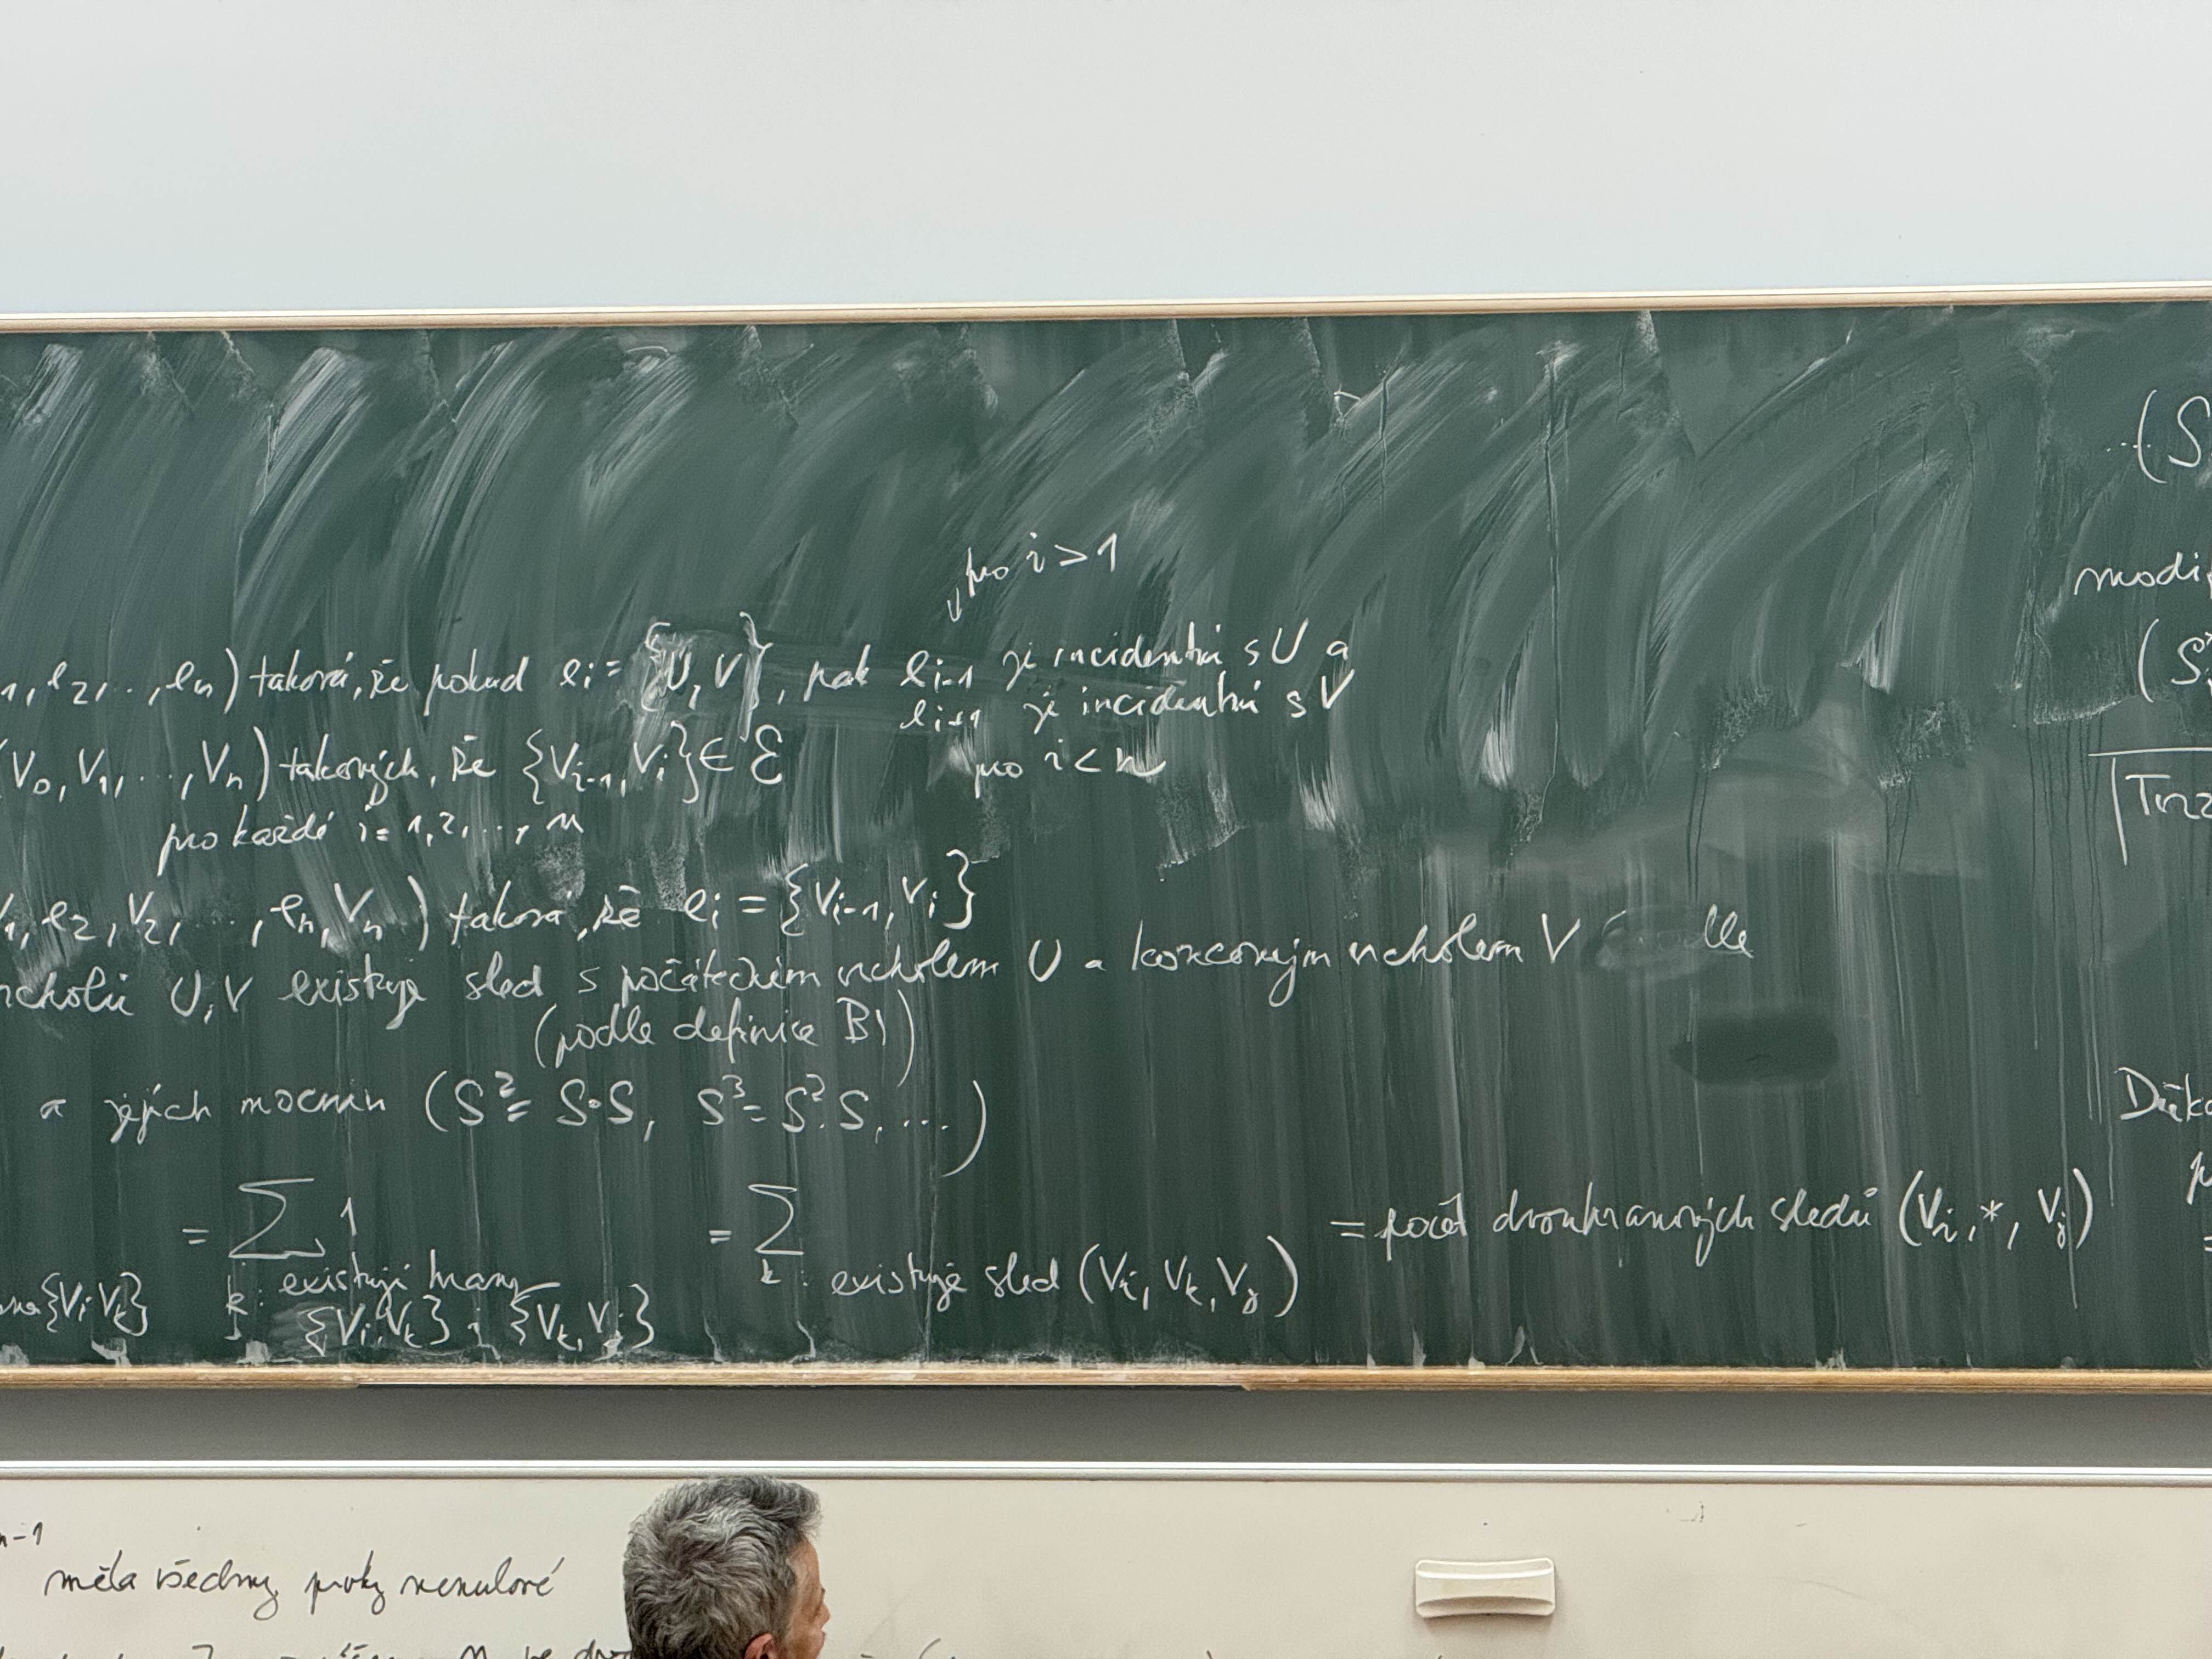 pro i > 1
1, e2, .., en) taková, že pokud ei = {U, V}, pak ei-1 je incidentní s U a
ei+1 je incidentní s V
pro i < n
(V0, V1, ..., Vn) takových, že {Vi-1, Vi} ∈ E
pro každé i = 1, 2, ..., n
1, e2, V2, ..., en, Vn) taková, že ei = {Vi-1, Vi}
vrcholů U, V existuje sled s počátečním vrcholem U a koncovým vrcholem V dle
(podle definice B))
a jejích mocnin (S² = S·S, S³ = S²·S, ...)
= ∑ 1
k: existují hrany
{Vi, Vk}, {Vk, Vj}
= ∑
k: existuje sled (Vi, Vk, Vj)
= počet dvouhranových sledů (Vi, *, Vj)
na {Vi Vk}
(S
modif
(S
Tvrz
Důka
n-1
měla všechny prvky nenulové